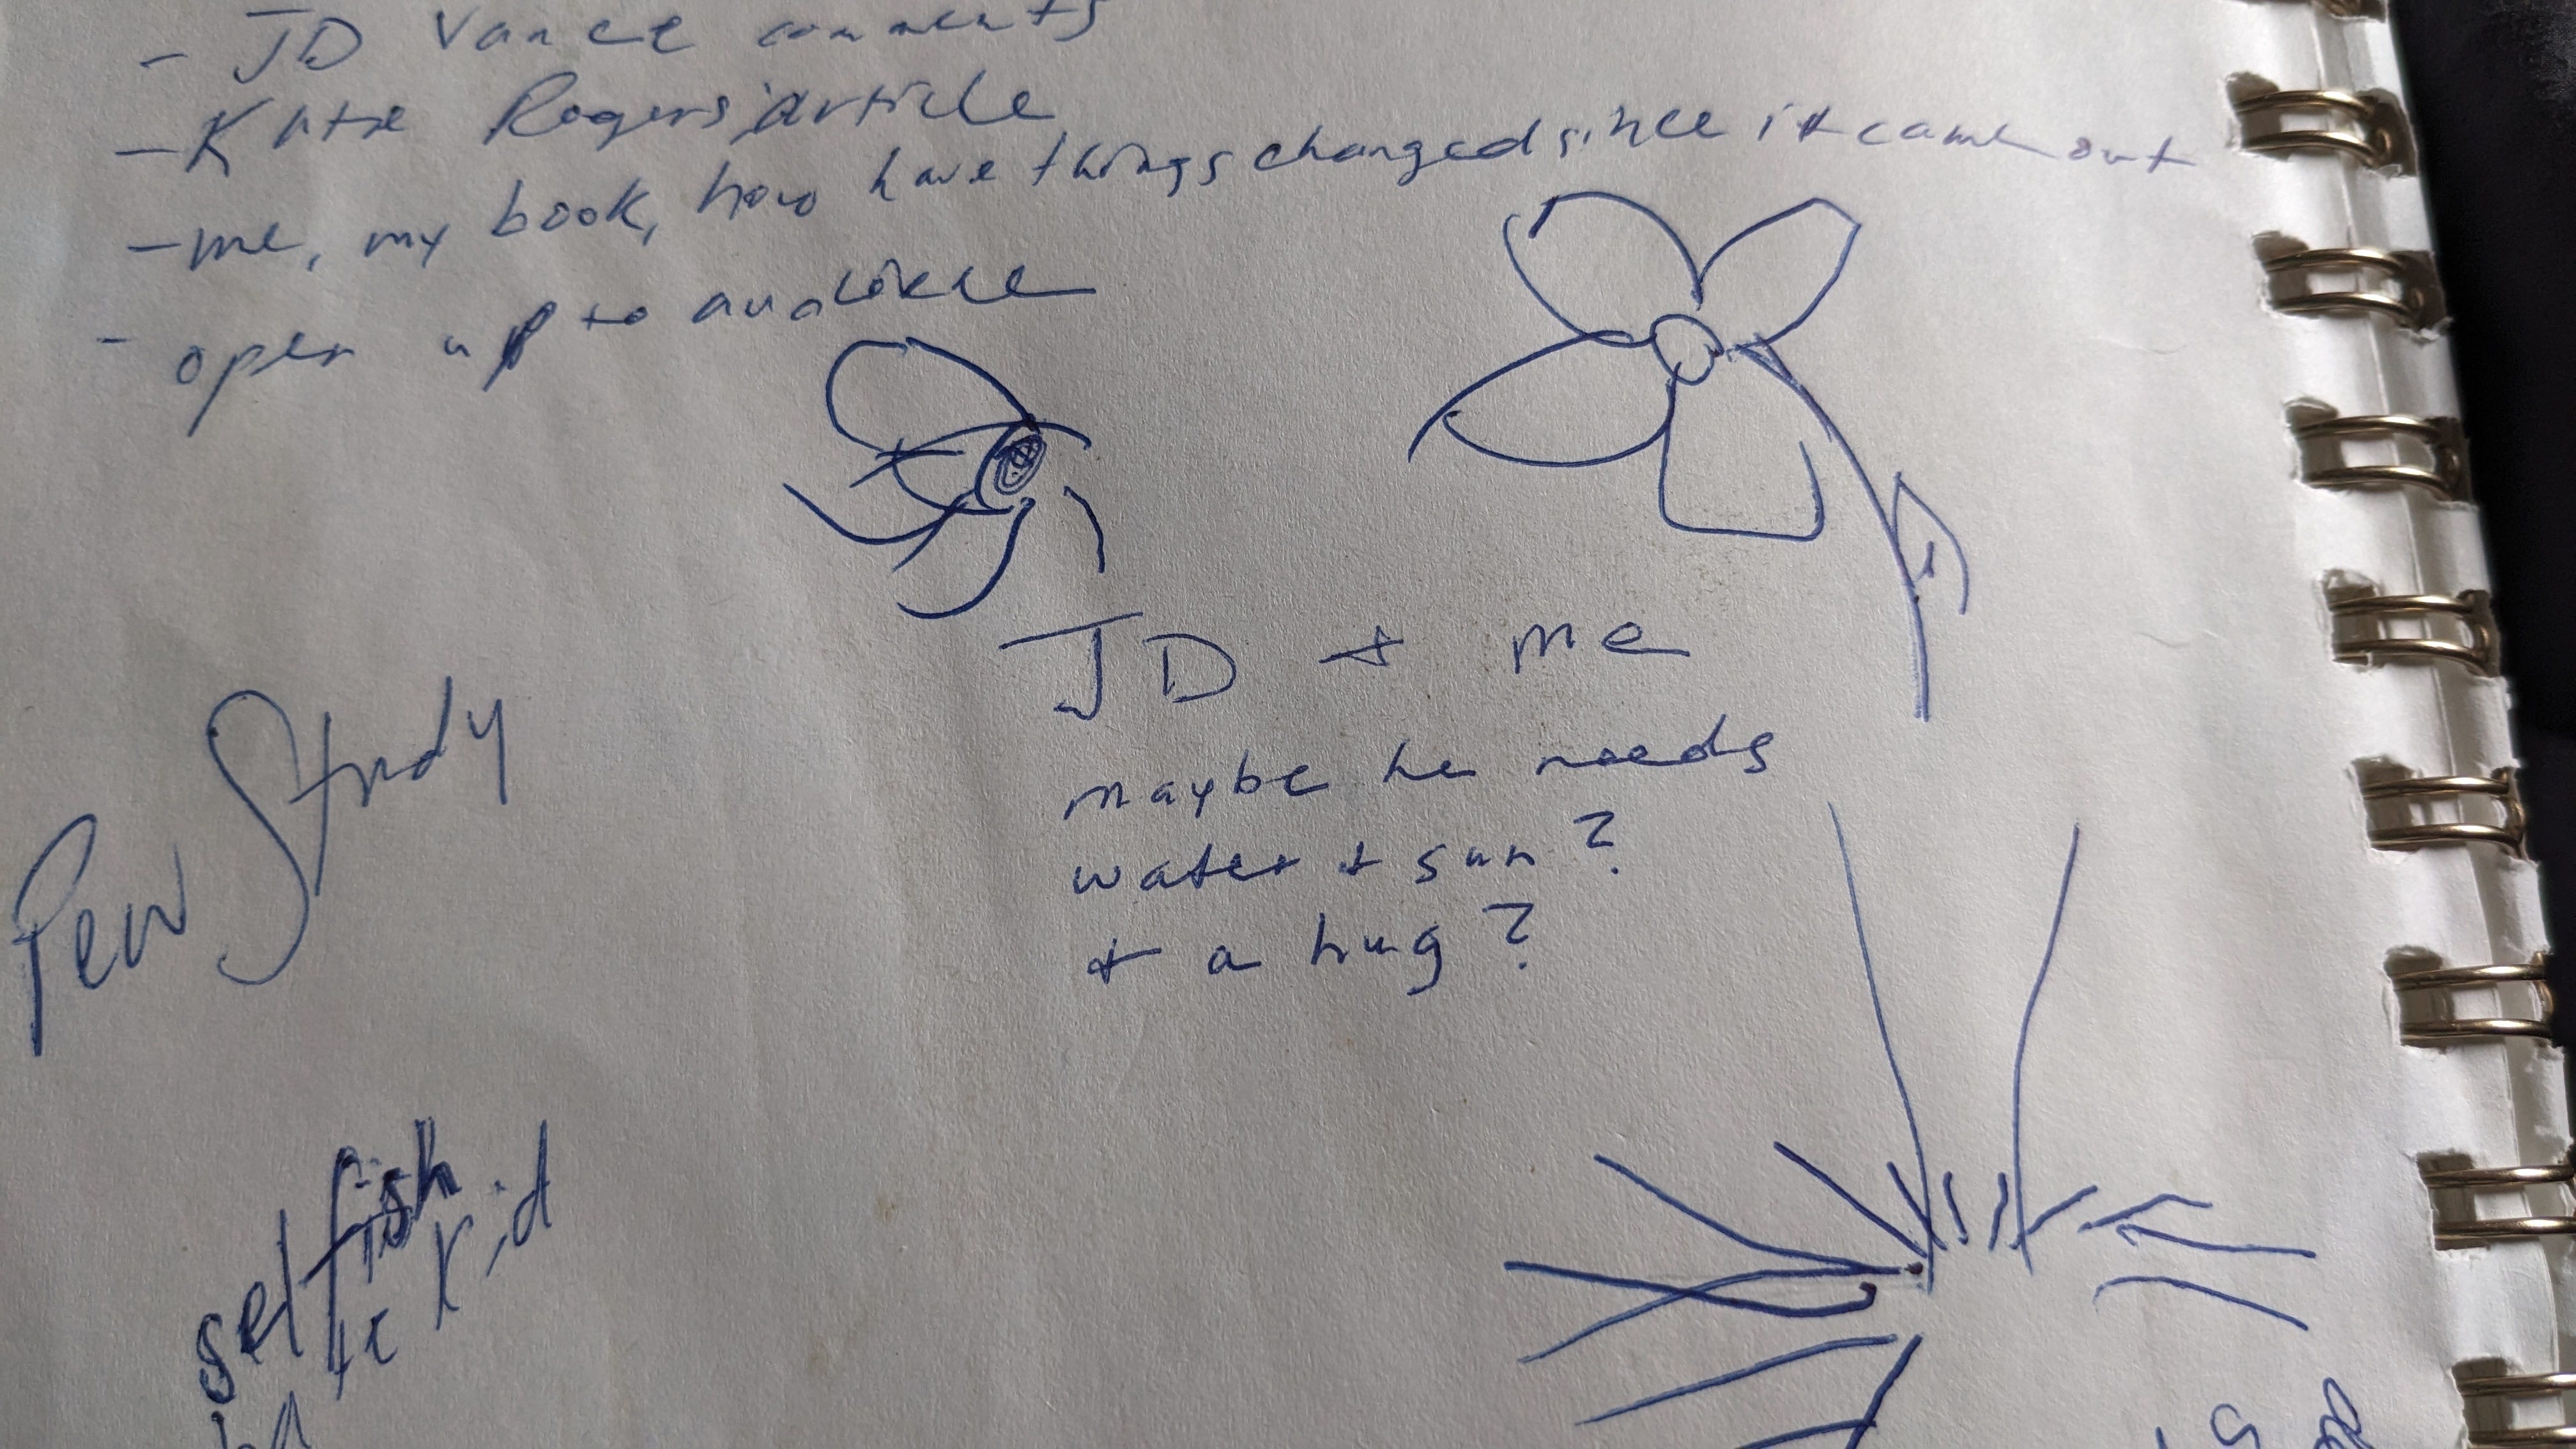 - JD Vance comments
- Katie Rogers article
- me, my book, how have things changed since it came out
- open up to audience
JD + me
maybe he needs
water + sun?
+ a hug?
Pew Study
selfish
kid